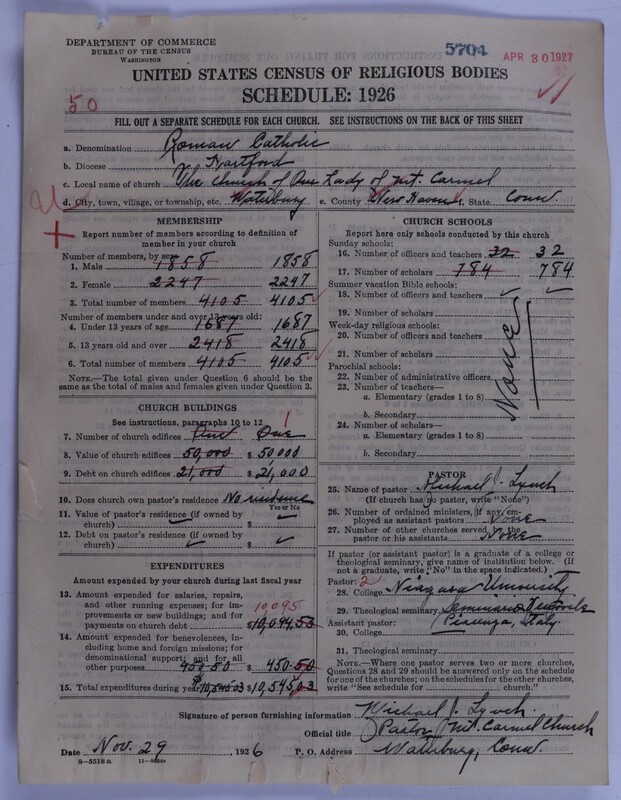 DEPARTMENT OF COMMERCE
BUREAU OF THE CENSUS
WASHINGTON
5704
APR 30 1927
UNITED STATES CENSUS OF RELIGIOUS BODIES
SCHEDULE: 1926
50
FILL OUT A SEPARATE SCHEDULE FOR EACH CHURCH. SEE INSTRUCTIONS ON THE BACK OF THIS SHEET
a. Denomination Roman Catholic
b. Diocese Hartford
c. Local name of church The Church of Our Lady of Mt. Carmel
d. City, town, village, or township, etc. Waterbury e. County New Haven f. State Conn.
MEMBERSHIP
Report number of members according to definition of
member in your church
Number of members, by sex:
1. Male 1858 1858
2. Female 2247 2247
3. Total number of members 4105 4105
Number of members under and over 13 years old:
4. Under 13 years of age 1687 1687
5. 13 years old and over 2418 2418
6. Total number of members 4105 4105
NOTE.—The total given under Question 6 should be
the same as the total of males and females given under Question 3.
CHURCH BUILDINGS
See instructions, paragraphs 10 to 12
1
7. Number of church edifices One One
8. Value of church edifices 50,000 $ 50,000
9. Debt on church edifices 21,000 $ 21,000
10. Does church own pastor's residence No residence
Yes or No
11. Value of pastor's residence (if owned by
church) $
12. Debt on pastor's residence (if owned by
church) $
EXPENDITURES
Amount expended by your church during last fiscal year
13. Amount expended for salaries, repairs,
and other running expenses; for im-
provements or new buildings; and for
payments on church debt $ 10,094.53
10,095
14. Amount expended for benevolences,
including home and foreign missions; for
denominational support; and for all
other purposes 450.50 $ 450.50
15. Total expenditures during year $10,545.03 $ 10,545.03
CHURCH SCHOOLS
Report here only schools conducted by this church
Sunday schools:
16. Number of officers and teachers 32 32
17. Number of scholars 784 784
Summer vacation Bible schools:
18. Number of officers and teachers
19. Number of scholars
Week-day religious schools:
20. Number of officers and teachers
21. Number of scholars
Parochial schools:
22. Number of administrative officers
23. Number of teachers—
a. Elementary (grades 1 to 8)
b. Secondary
24. Number of scholars—
a. Elementary (grades 1 to 8)
b. Secondary
None
PASTOR
25. Name of pastor Michael J. Lynch
(If church has no pastor, write "None")
26. Number of ordained ministers, if any, em-
ployed as assistant pastors None
27. Number of other churches served by the
pastor or his assistants None
If pastor (or assistant pastor) is a graduate of a college or
theological seminary, give name of institution below. (If
not a graduate, write "No" in the space indicated.)
Pastor: 2
28. College Niagara University
29. Theological seminary
Assistant pastor: Piacenza, Italy
30. College
31. Theological seminary
NOTE.—Where one pastor serves two or more churches,
Questions 28 and 29 should be answered only on the schedule
for one of the churches; on the schedules for the other churches,
write "See schedule for church."
Signature of person furnishing information Michael J. Lynch.
Official title Pastor Mt. Carmel Church
Date Nov. 29, 1926 P. O. Address Waterbury, Conn.
8-5518a